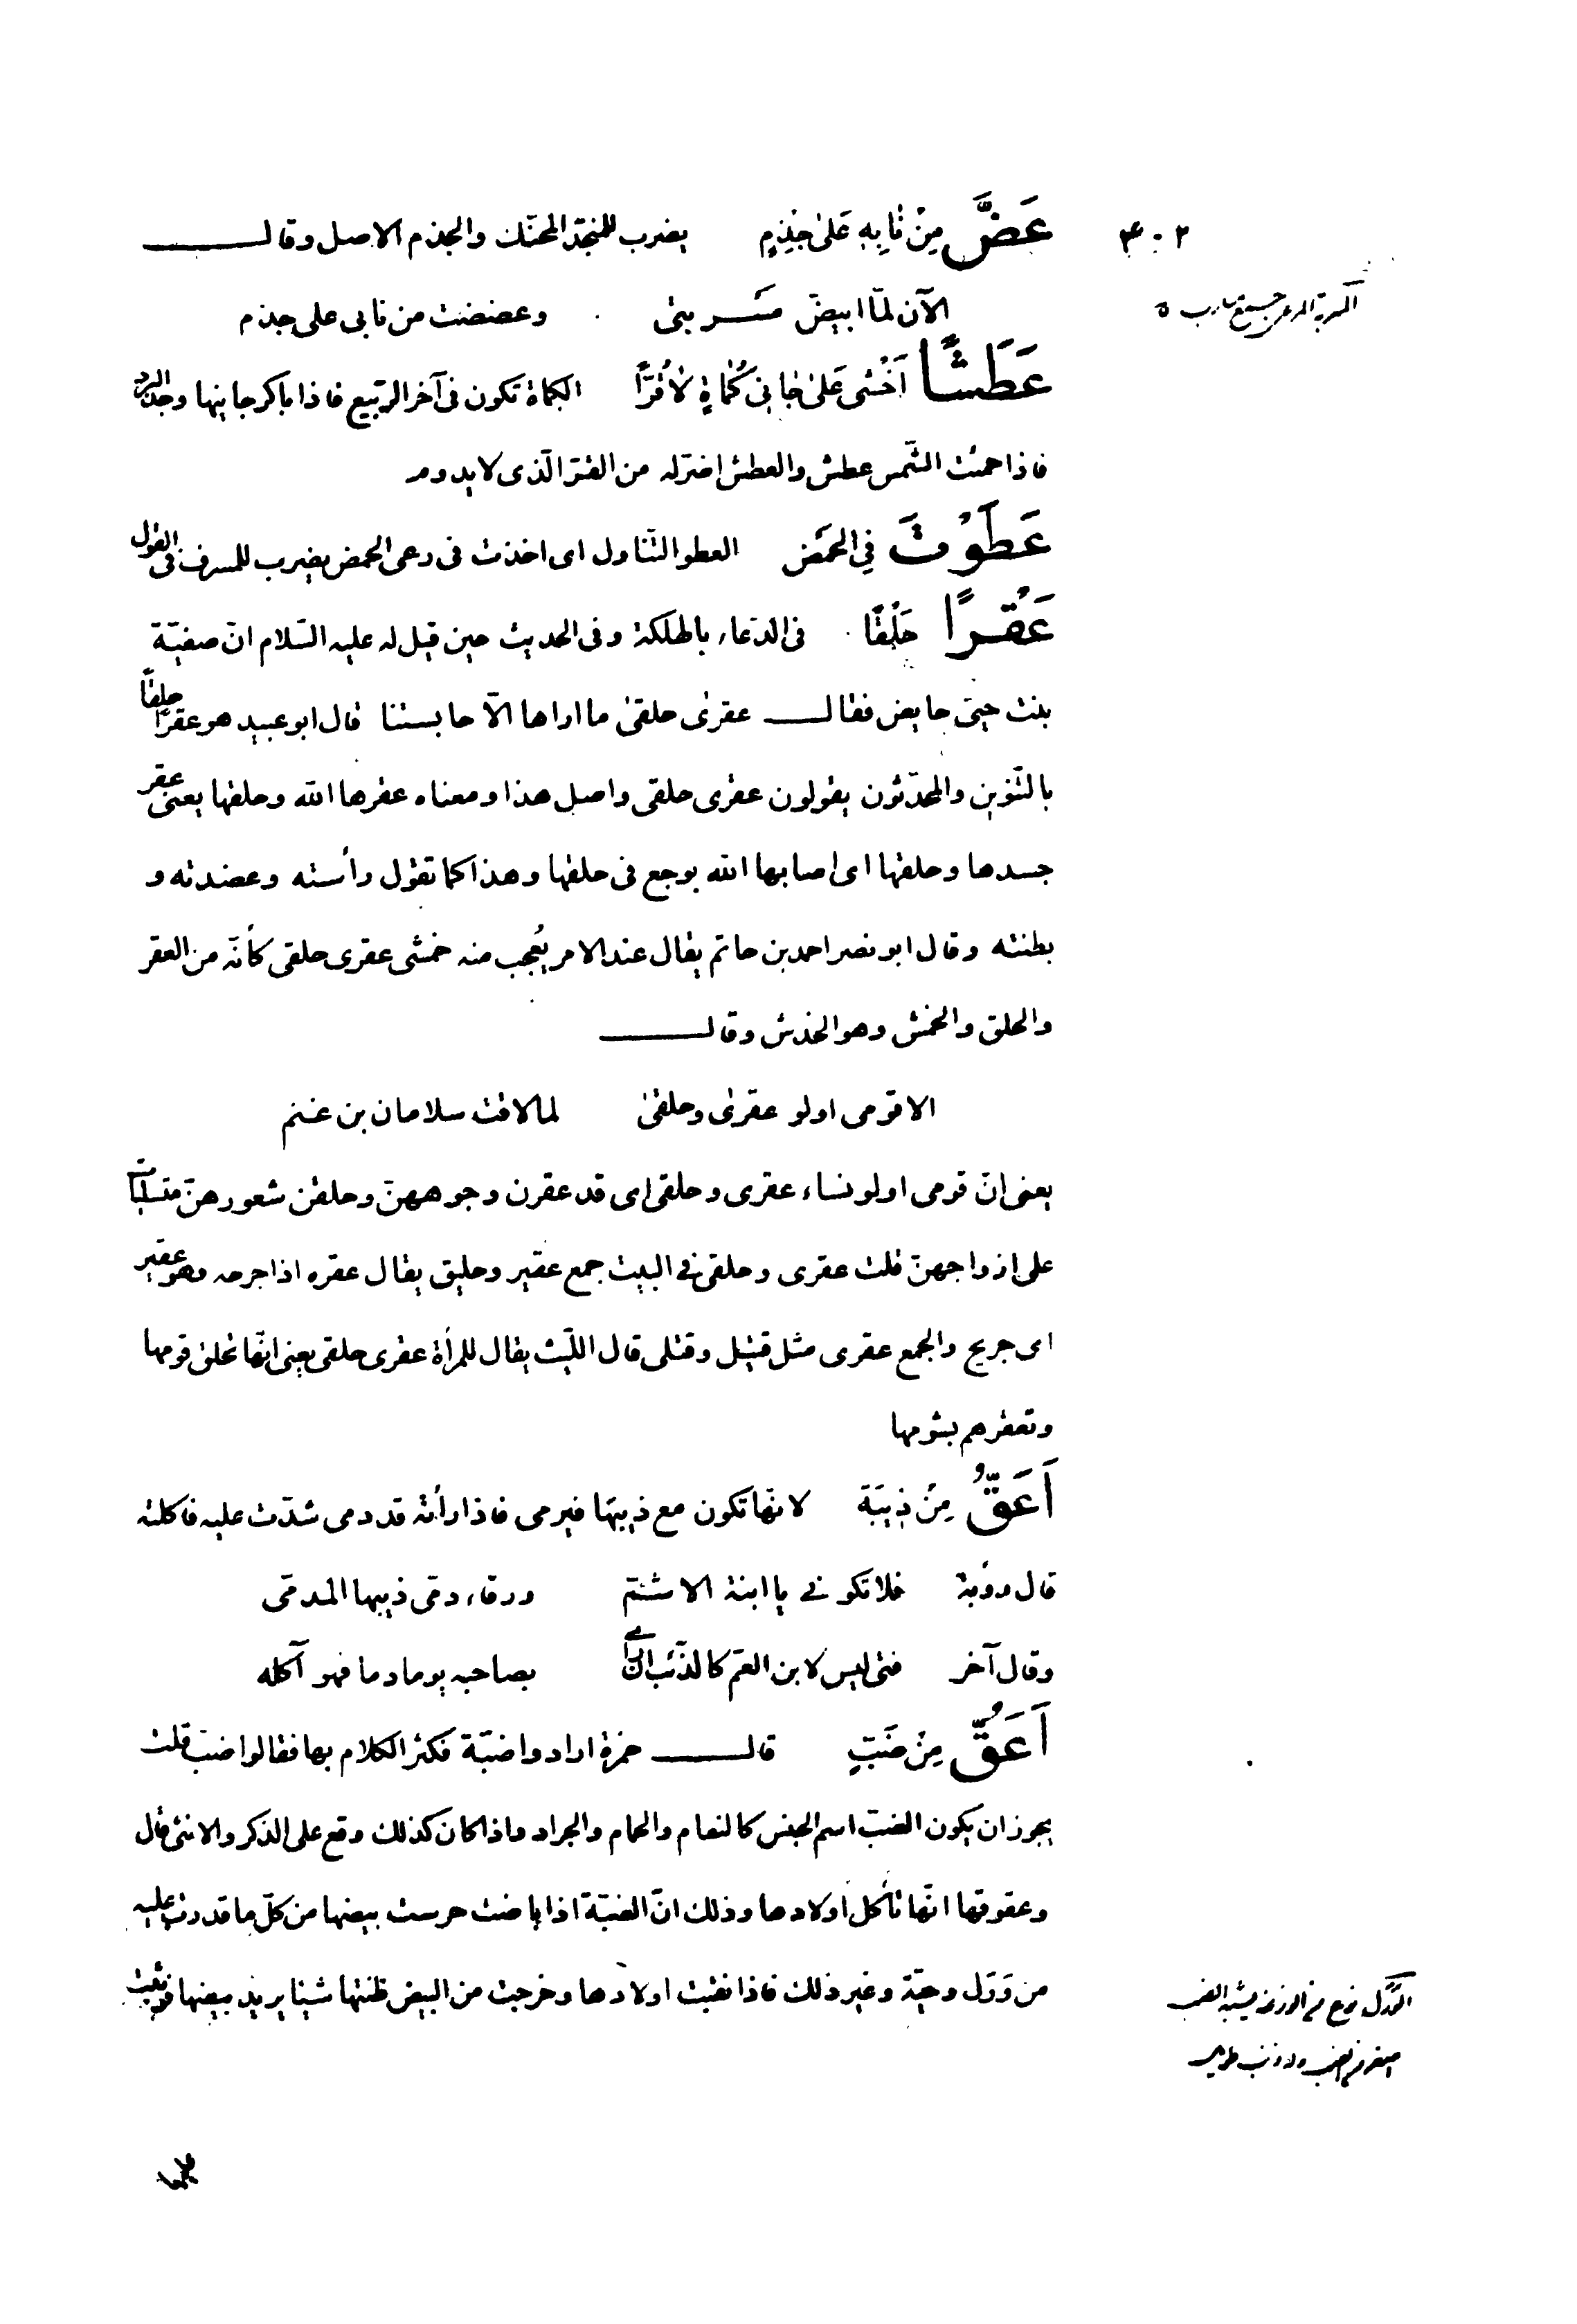 ٣٠٢
عَضَّ مِنْ نَابِهِ عَلىٰ جِذِمٍ يضرب للمنجّذ المحنّك والجذم الاصل وقال
المسربة الشعر
الآن لمّا ابيضّ مسربتى وعضضت من نابى على جذم
عَطَشًا اَخْشٰى عَلىٰ جَانِى كَمْاةٍ لَا قُرًّا الكماة تكون فى آخر الربيع فاذا باكر جانيها وجد البرد
فاذا حميت الشّمس عطش والعطش اضرّ له من القرّ الّذى لا يدوم
عَطَوْتَ فِى الحَمْضِ العطو التّناول اى اخذت فى رعى الحمض يضرب للمسرف فى القول
عَقْرًا حَلْقًا فى الدّعاء بالهلكة وفى الحديث حين قيل له عليه السّلام انّ صفيّة
بنت حيىّ حايض فقال عقرىٰ حلقىٰ ما اراها الّا حابستنا قال ابو عبيد هو عقرًا حلقًا
بالتّنوين والمحدّثون يقولون عقرى حلقى واصل هذا ومعناه عقرها الله وحلقها يعنى عقر
جسدها وحلقها اى اصابها الله بوجع فى حلقها وهذا كما تقول رأسته وعضدته و
بطنته وقال ابو نصر احمد بن حاتم يقال عند الامر يُعجب منه خمشى عقرى حلقى كأنّه من العقر
والحلق والخمش وهو الخدش وقال
الا قومى اولو عقرىٰ وحلقىٰ لما لاقت سلامان بن غنم
يعنى انّ قومى اولو نساء عقرى وحلقى اى قد عقرن وجوههنّ وحلقن شعورهنّ متسلّبات
على ازواجهنّ قلت عقرى وحلقى فى البيت جمع عقير وحليق يقال عقره اذا جرحه وهو عقير
اى جريح والجمع عقرى مثل قتيل وقتلى قال اللّيث يقال للمرأة عقرى حلقى يعنى انّها تحلق قومها
وتعقرهم بشومها
اَعَقُّ مِنْ ذِيبَة لانّها تكون مع ذيبها فيرمى فاذا رأته قد دمى شدّت عليه فاكلته
قال روبة فلا تكونى يا ابنة الاشمّ ورقاء دمّى ذيبها المدمّى
وقال آخر فتى ليس لابن العمّ كالذّئب ان رأى بصاحبه يوما دما فهو آكله
اَعَقُّ مِنْ ضَبٍّ قال حمزة ارادوا ضبّة فكثر الكلام بها فقالوا ضبّ قلت
يجوز ان يكون الضبّ اسم الجنس كالنعام والحمام والجراد واذا كان كذلك وقع على الذكر والانثى قال
وعقوقها انّها تأكل اولادها وذلك انّ الضبّة اذا باضت حرست بيضها من كلّ ما قدرت عليه
من وَرَل وحيّة وغير ذلك فاذا نقبت اولادها وخرجت من البيض ظنّتها شيئا يريد بيضها فوثبت
الورل نوع من الوزغة يشبه الضب
اصغر من الضب وله ذنب طويل